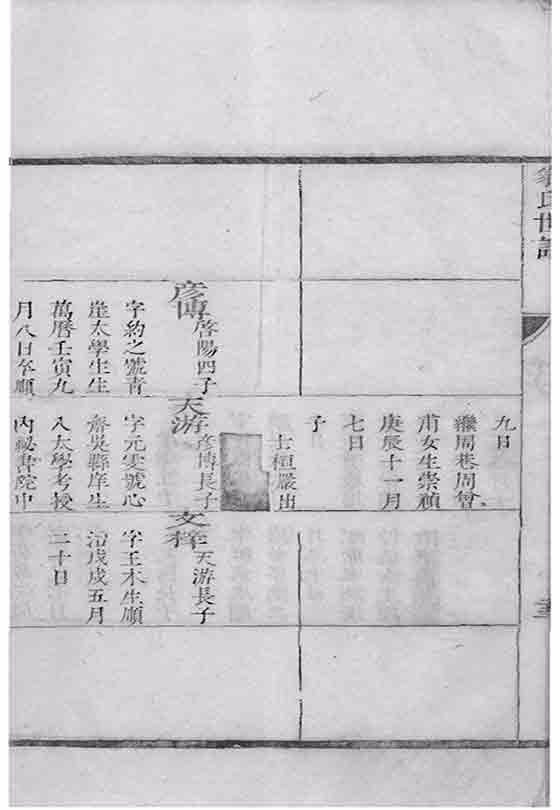 翁氏世譜
九日
繼周巷周會
甫女生崇禎
庚辰十一月
七日
子
士桓嚴出
彥博 啓陽四子
字約之號青
崖太學生生
萬曆壬寅九
月八日卒順
天游 彥博長子
字元雯號心
齋吳縣庠生
入太學考授
內秘書院中
文梓 天游長子
字王木生順
治戊戌五月
二十日